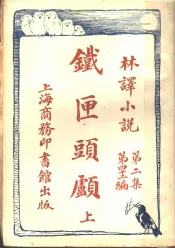 林譯小說
第二集
第 編
鐵匣頭顱
上
上海商務印書館出版